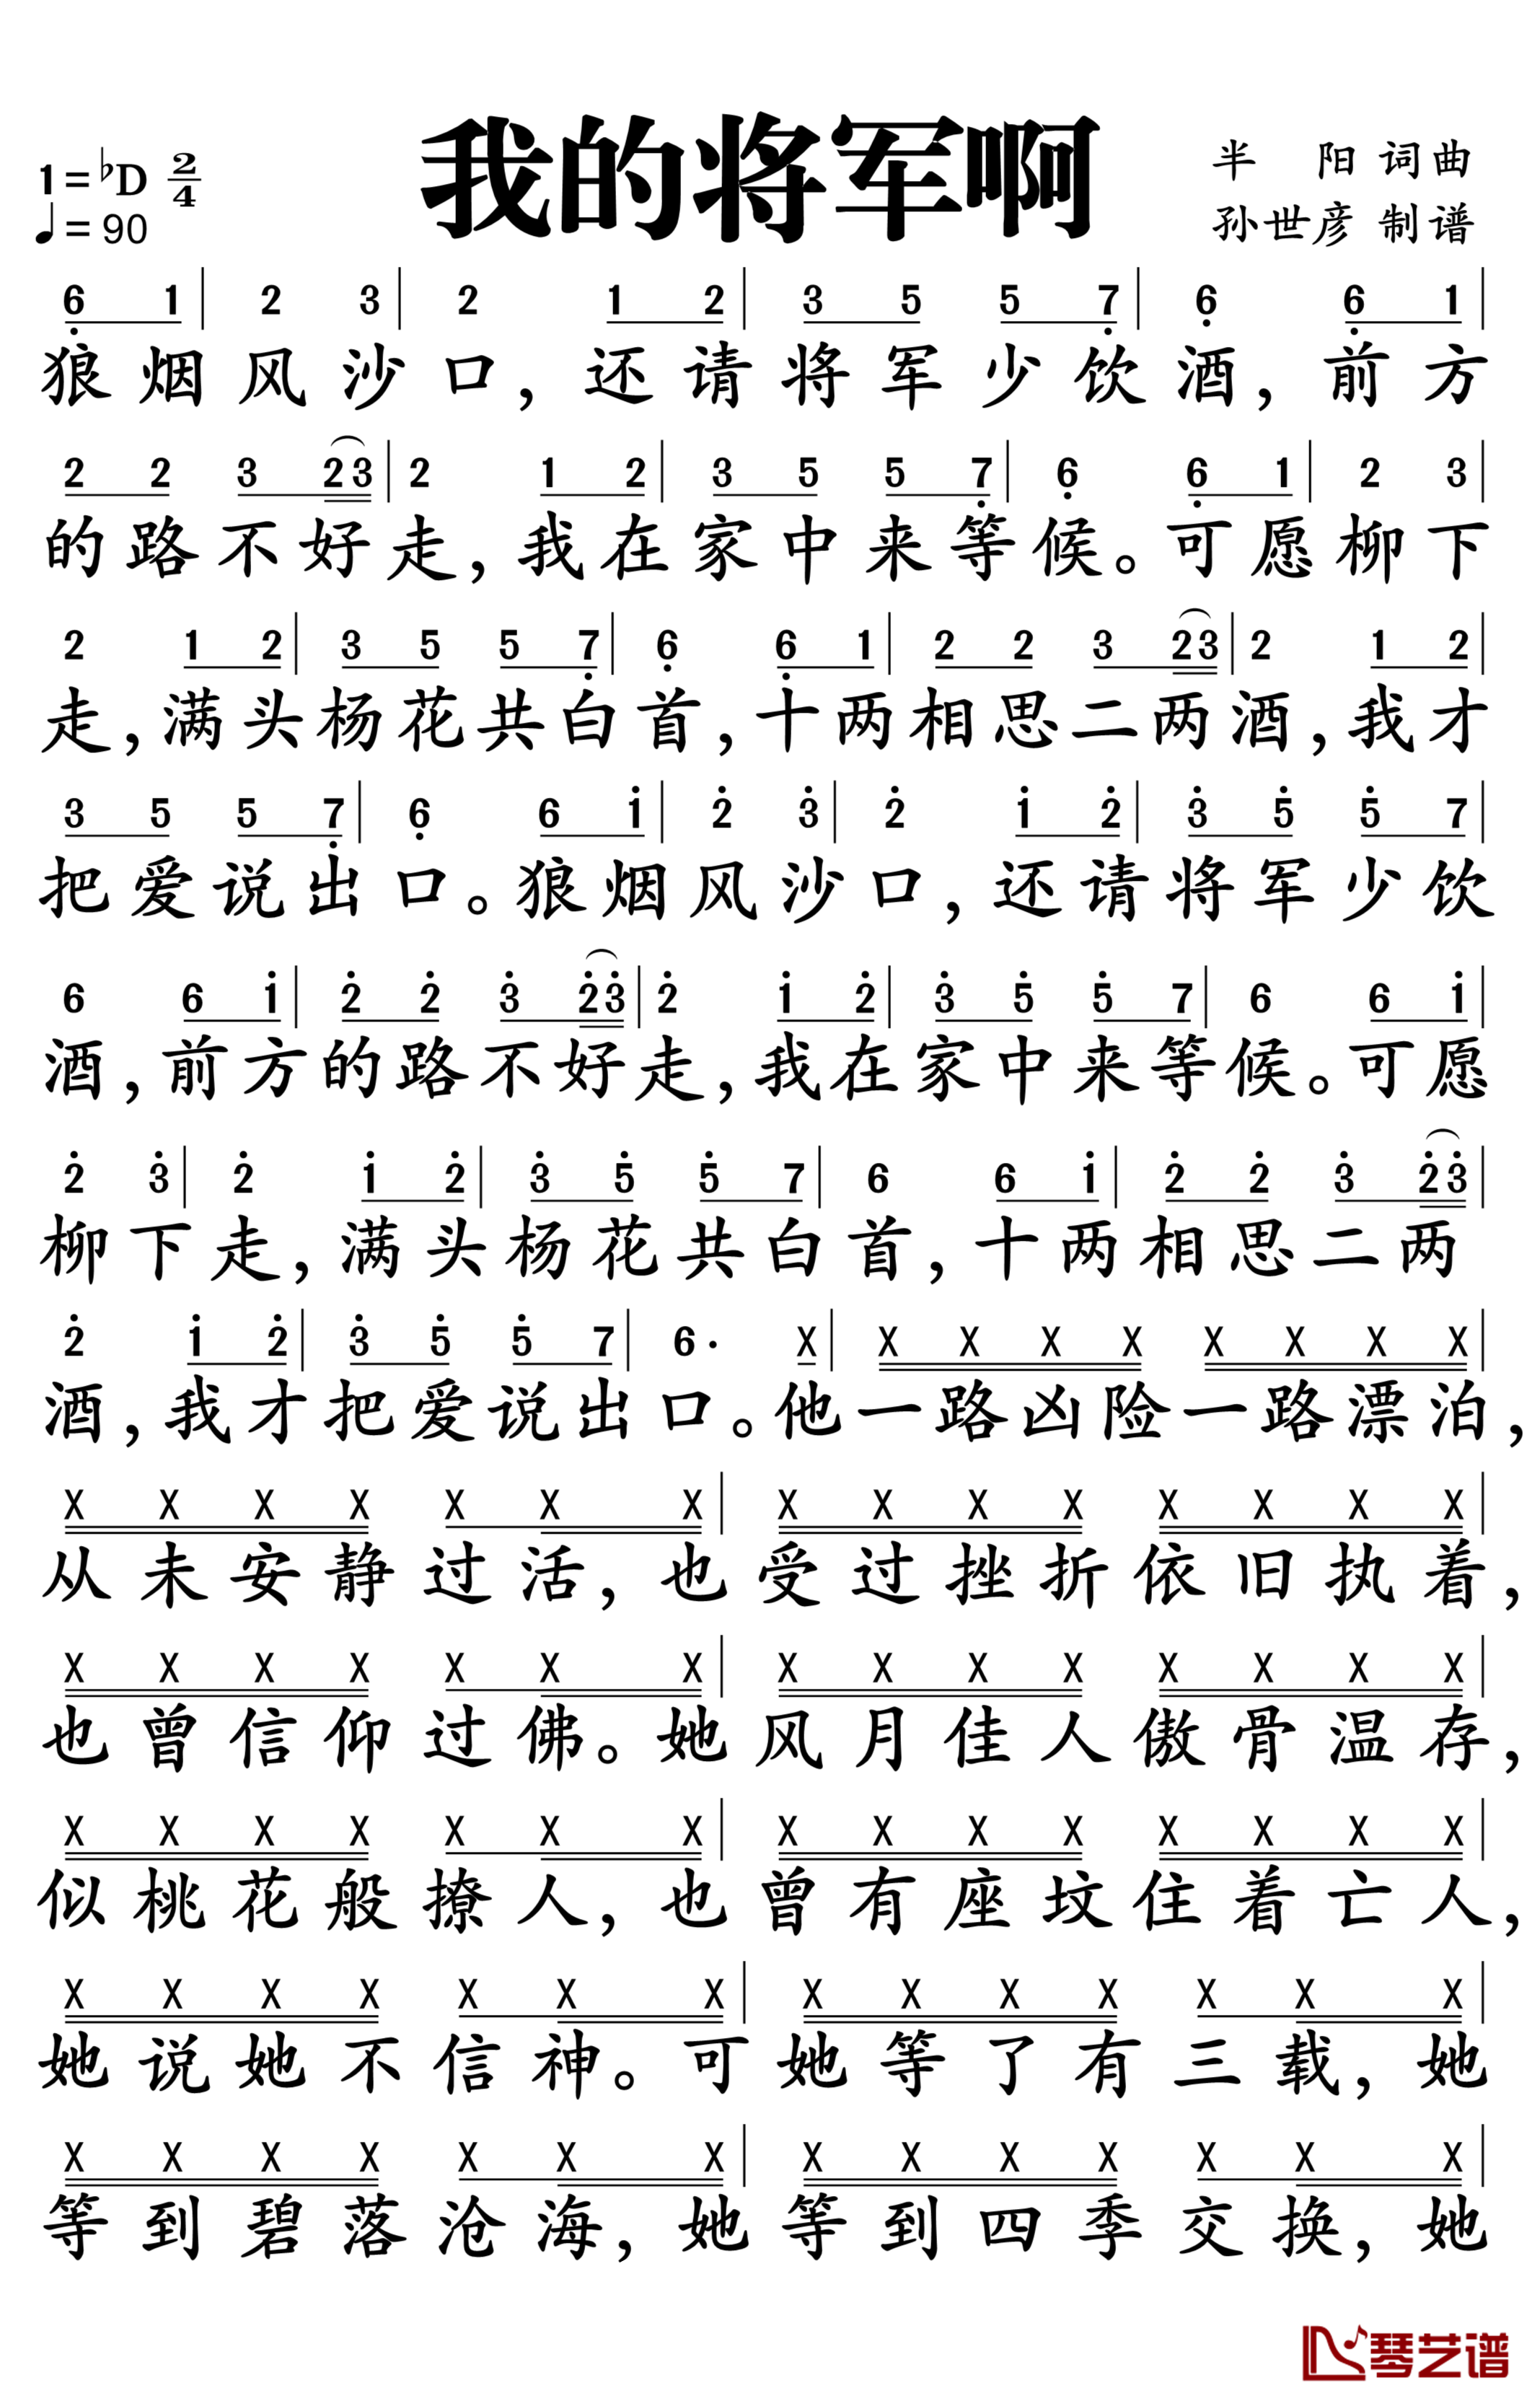 我的将军啊
1=♭D 2/4
♩=90
半 阳 词曲
孙世彦 制谱
6̣ 1 | 2 3 | 2 1 2 | 3 5 5 7̣ | 6̣ 6̣ 1 |
狼烟风沙口，还请将军少饮酒，前方
2 2 3 2 3 | 2 1 2 | 3 5 5 7̣ | 6̣ 6̣ 1 | 2 3 |
的路不好走，我在家中来等候。可愿柳下
2 1 2 | 3 5 5 7̣ | 6̣ 6̣ 1 | 2 2 3 2 3 | 2 1 2 |
走，满头杨花共白首，十两相思二两酒，我才
3 5 5 7̣ | 6̣ 6 1̇ | 2̇ 3̇ | 2̇ 1̇ 2̇ | 3̇ 5̇ 5̇ 7 |
把爱说出口。狼烟风沙口，还请将军少饮
6 6 1̇ | 2̇ 2̇ 3̇ 2̇ 3̇ | 2̇ 1̇ 2̇ | 3̇ 5̇ 5̇ 7 | 6 6 1̇ |
酒，前方的路不好走，我在家中来等候。可愿
2̇ 3̇ | 2̇ 1̇ 2̇ | 3̇ 5̇ 5̇ 7 | 6 6 1̇ | 2̇ 2̇ 3̇ 2̇ 3̇ |
柳下走，满头杨花共白首，十两相思二两
2̇ 1̇ 2̇ | 3̇ 5̇ 5̇ 7 | 6· X | X X X X X X X X |
酒，我才把爱说出口。他一路凶险一路漂泊，
X X X X X X X | X X X X X X X X |
从未安静过活，也受过挫折依旧执着，
X X X X X X X | X X X X X X X X |
也曾信仰过佛。她风月佳人傲骨温存，
X X X X X X X | X X X X X X X X |
似桃花般撩人，也曾有座坟住着亡人，
X X X X X X X | X X X X X X X |
她说她不信神。可她等了有三载，她
X X X X X X X | X X X X X X X |
等到碧落沧海，她等到四季交换，她
琴艺谱